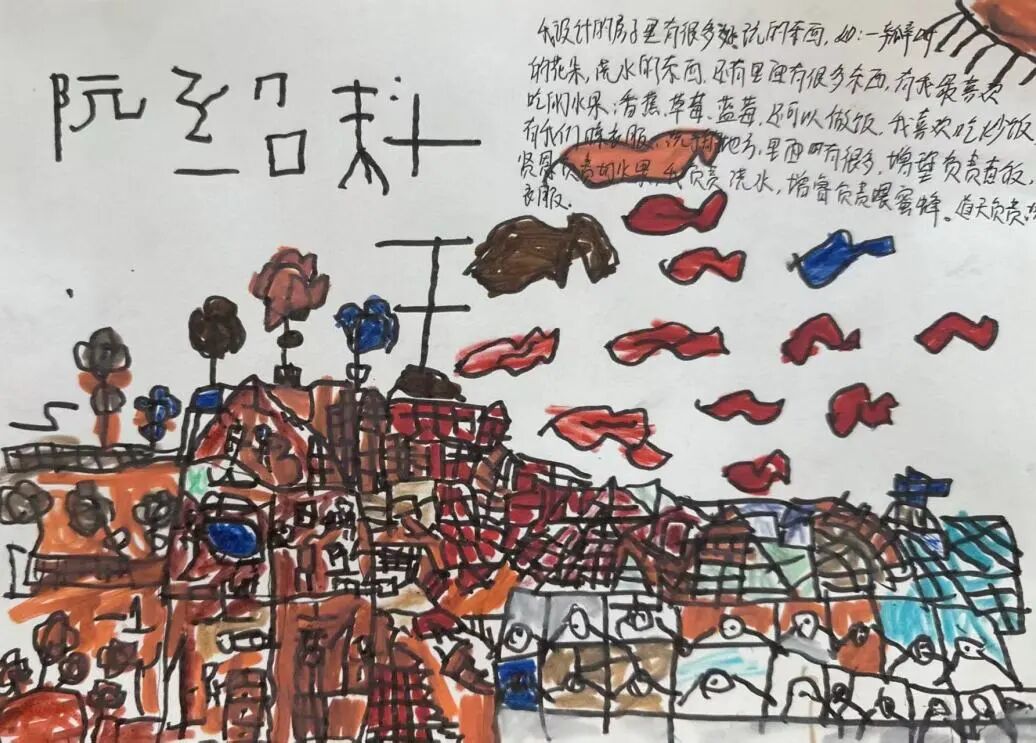 阮 绍
我设计的房子里有很多好玩的东西，如：一
的花朵，洗水的东西，还有里面有很多东西，有我最喜欢
吃的水果：香蕉、草莓、蓝莓，还可以做饭，我喜欢吃炒饭
有我们 衣服、洗 地方，里面 有很多，增 负责煮饭，
贤 负责切水果，我负责洗水，增睿负责喂蜜蜂。道天负责
衣服．